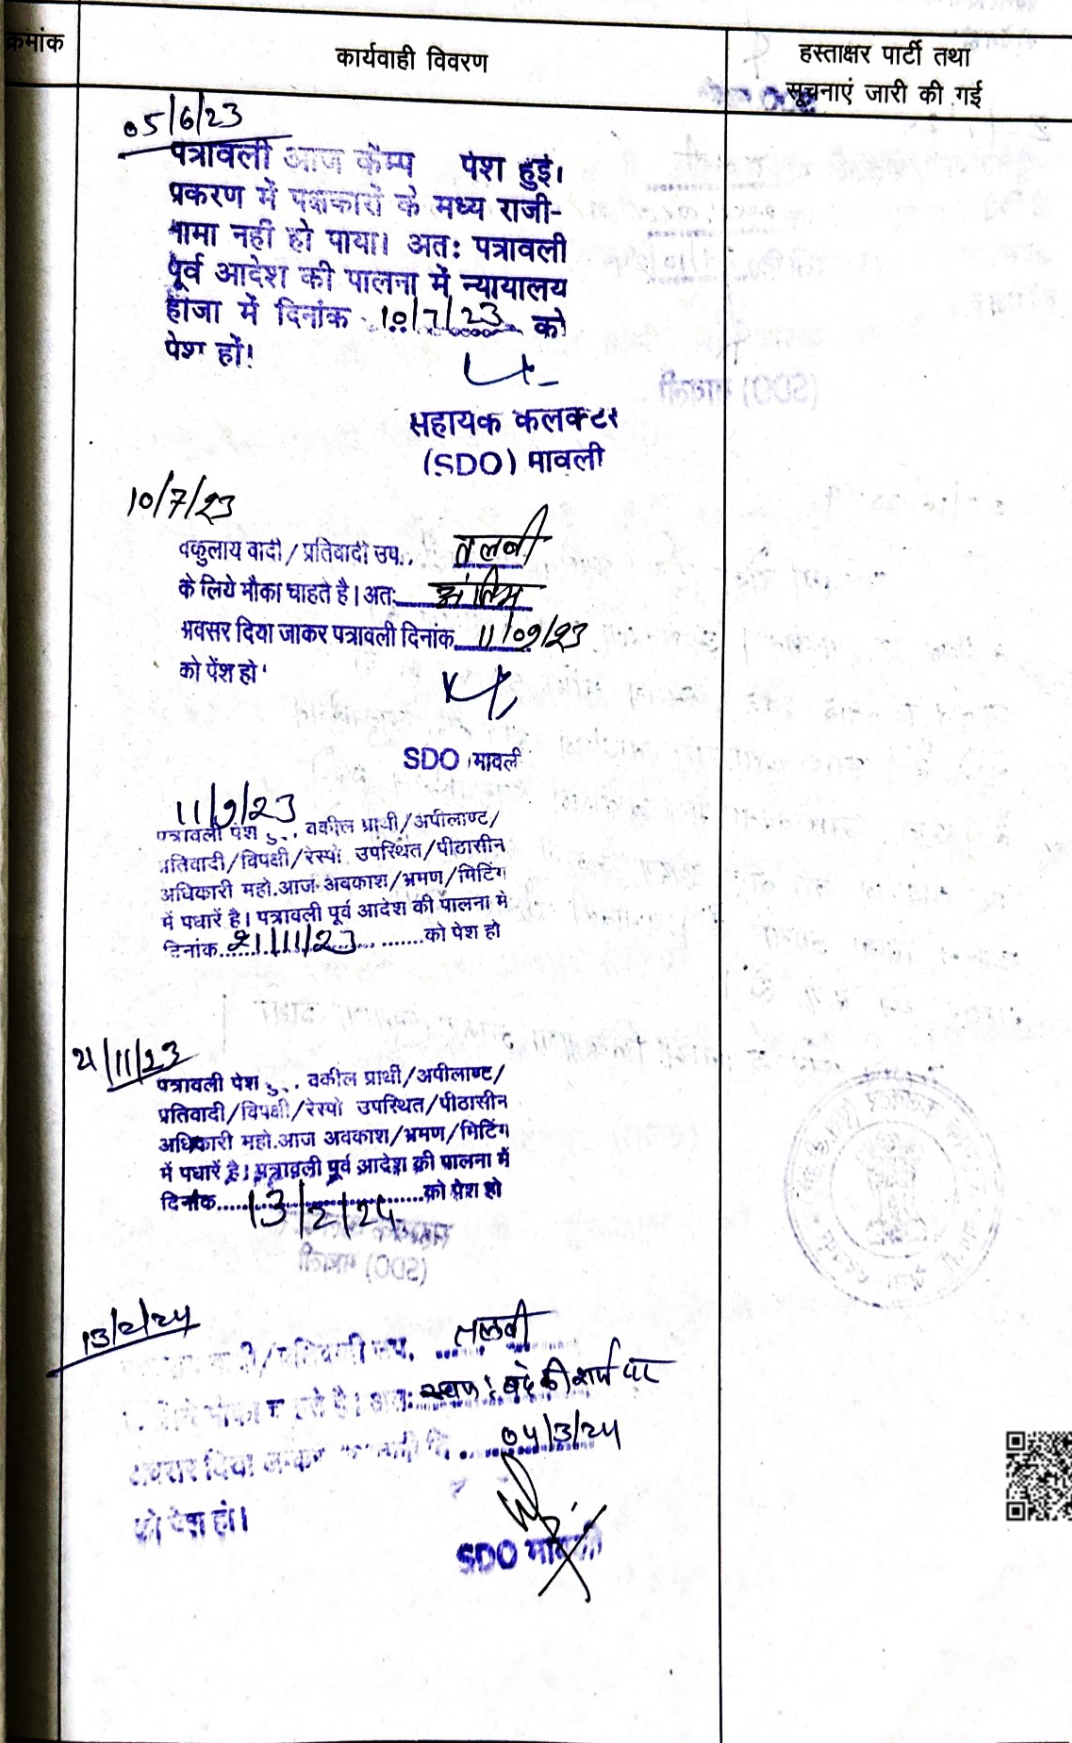 क्रमांक
कार्यवाही विवरण
हस्ताक्षर पार्टी तथा
सूचनाएं जारी की गई
05/6/23
पत्रावली आज केम्प पेश हुई।
प्रकरण में पक्षकारों के मध्य राजी-
नामा नही हो पाया। अतः पत्रावली
पूर्व आदेश की पालना में न्यायालय
हाजा में दिनांक 10/7/23 को
पेश हों!
सहायक कलक्टर
(SDO) मावली
10/7/23
वकुलाय वादी / प्रतिवादी उप.. तलबी
के लिये मौका चाहते है। अतः अंतिम
अवसर दिया जाकर पत्रावली दिनांक 11/09/23
को पेंश हो
SDO मावली
11/9/23
पत्रावली पेश हु... वकील प्रार्थी/अपीलाण्ट/
प्रतिवादी/विपक्षी/रेस्पो उपस्थित/पीठासीन
अधिकारी महो.आज अवकाश/भ्रमण/मिटिंग
में पधारें है। पत्रावली पूर्व आदेश की पालना में
दिनांक..21/11/23.......को पेश हो
21/11/23
पत्रावली पेश हु... वकील प्रार्थी/अपीलाण्ट/
प्रतिवादी/विपक्षी/रेस्पो उपस्थित/पीठासीन
अधिकारी महो.आज अवकाश/भ्रमण/मिटिंग
में पधारें है। पत्रावली पूर्व आदेश की पालना में
दिनांक......13/2/24......को पेश हो
13/2/24
वादी/प्रतिवादी उप. तलबी
मौका चाहते है। अतः की शर्त पर
अवसर दिया जाकर 04/3/24
को पेश हो।
SDO मावली